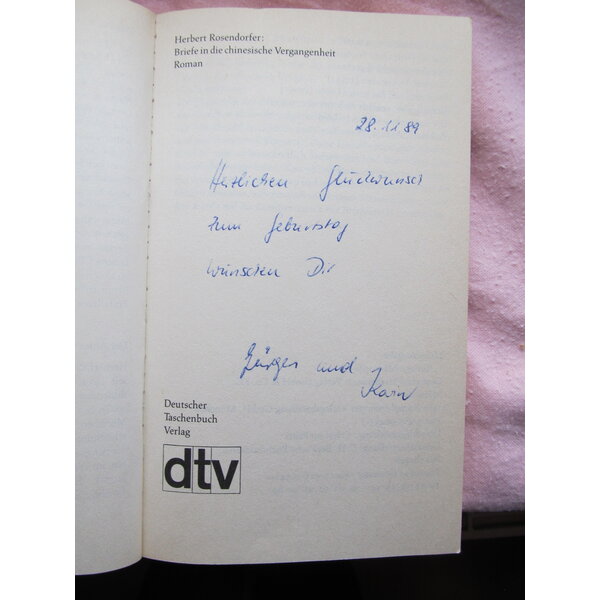 Herbert Rosendorfer:
Briefe in die chinesische Vergangenheit
Roman
28.11.89
Herzlichen Glückwunsch
zum Geburtstag
wünschen Dir
Jürgen und
Karin
Deutscher
Taschenbuch
Verlag
dtv